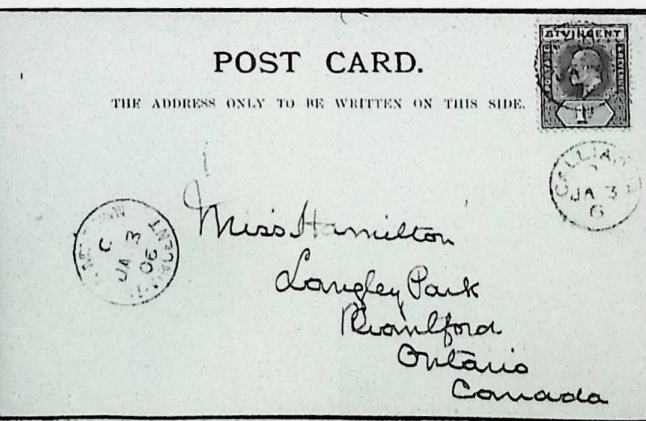 POST CARD.
THE ADDRESS ONLY TO BE WRITTEN ON THIS SIDE.
ST VINCENT
1d
CALLIAQUA
C
JA 3
6
KINGSTOWN
C
JA 3
06
ST VINCENT
Miss Hamilton
Langley Park
Brantford
Ontario
Canada